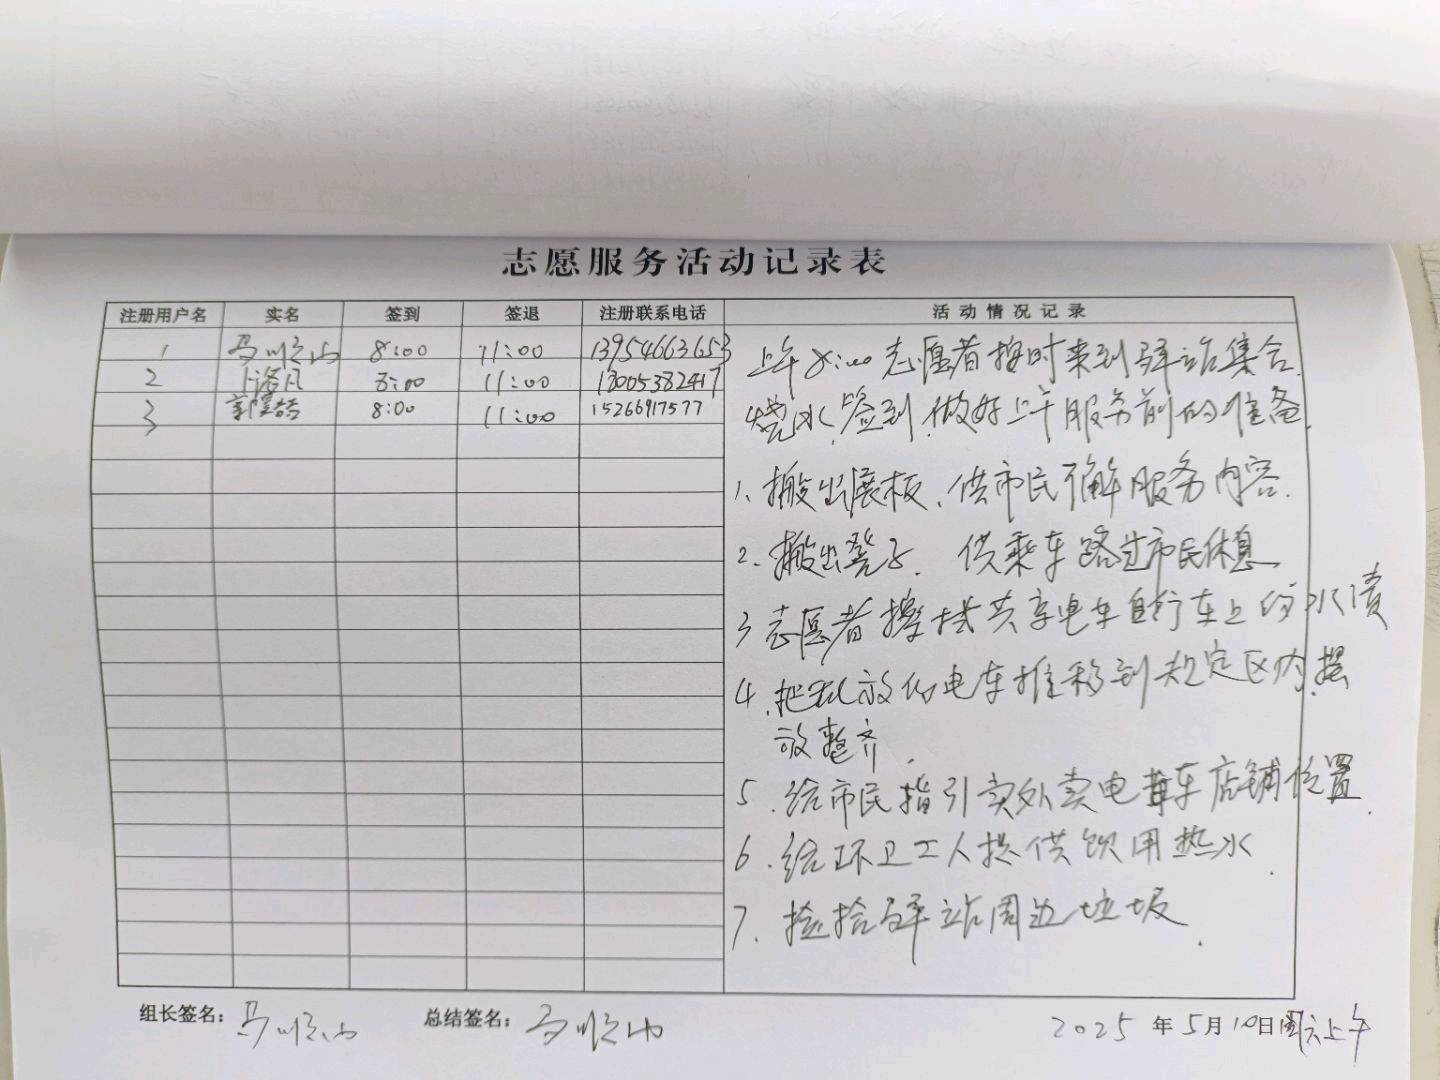 志愿服务活动记录表
注册用户名 实名 签到 签退 注册联系电话 活动情况记录
1 马顺山 8:00 11:00 13954663653
2 卜洛凡 8:00 11:00 18005382417
3 8:00 11:00 15266917577
上午8:00志愿者按时来到驿站集合.
烧水,签到,做好上午服务前的准备.
1、搬出展板、供市民了解服务内容.
2、搬出凳子、供乘车路过市民休息
3 志愿者擦拭共享电车自行车上的水渍
4、把乱放的电车推移到规定区内,摆
放整齐.
5.给市民指引卖外卖电车店铺位置.
6.给环卫工人提供饮用热水.
7.捡拾驿站周边垃圾.
组长签名:马顺山 总结签名:马顺山 2025年5月10日周六上午